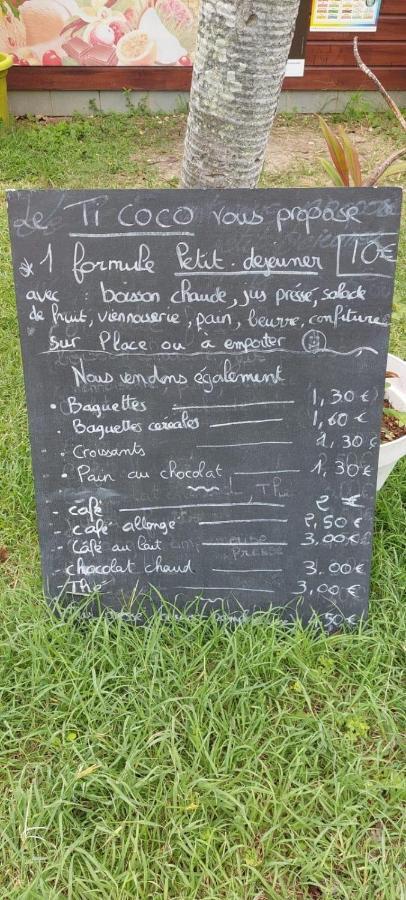 Le Ti COCO vous propose
* 1 formule Petit.dejeuner 10€
avec : boisson chaude, jus pressé, salade
de fruit, viennoiserie, pain, beurre, confiture
sur Place ou à emporter
Nous vendons également
• Baguettes 1,30€
• Baguettes céréales 1,60€
- Croissants 1,30€
• Pain au chocolat 1,30€
- café 2€
- café allongé 2,50€
- Café au lait 3,00€
- chocolat chaud 3.00€
- Thé 3,00€
4,50€